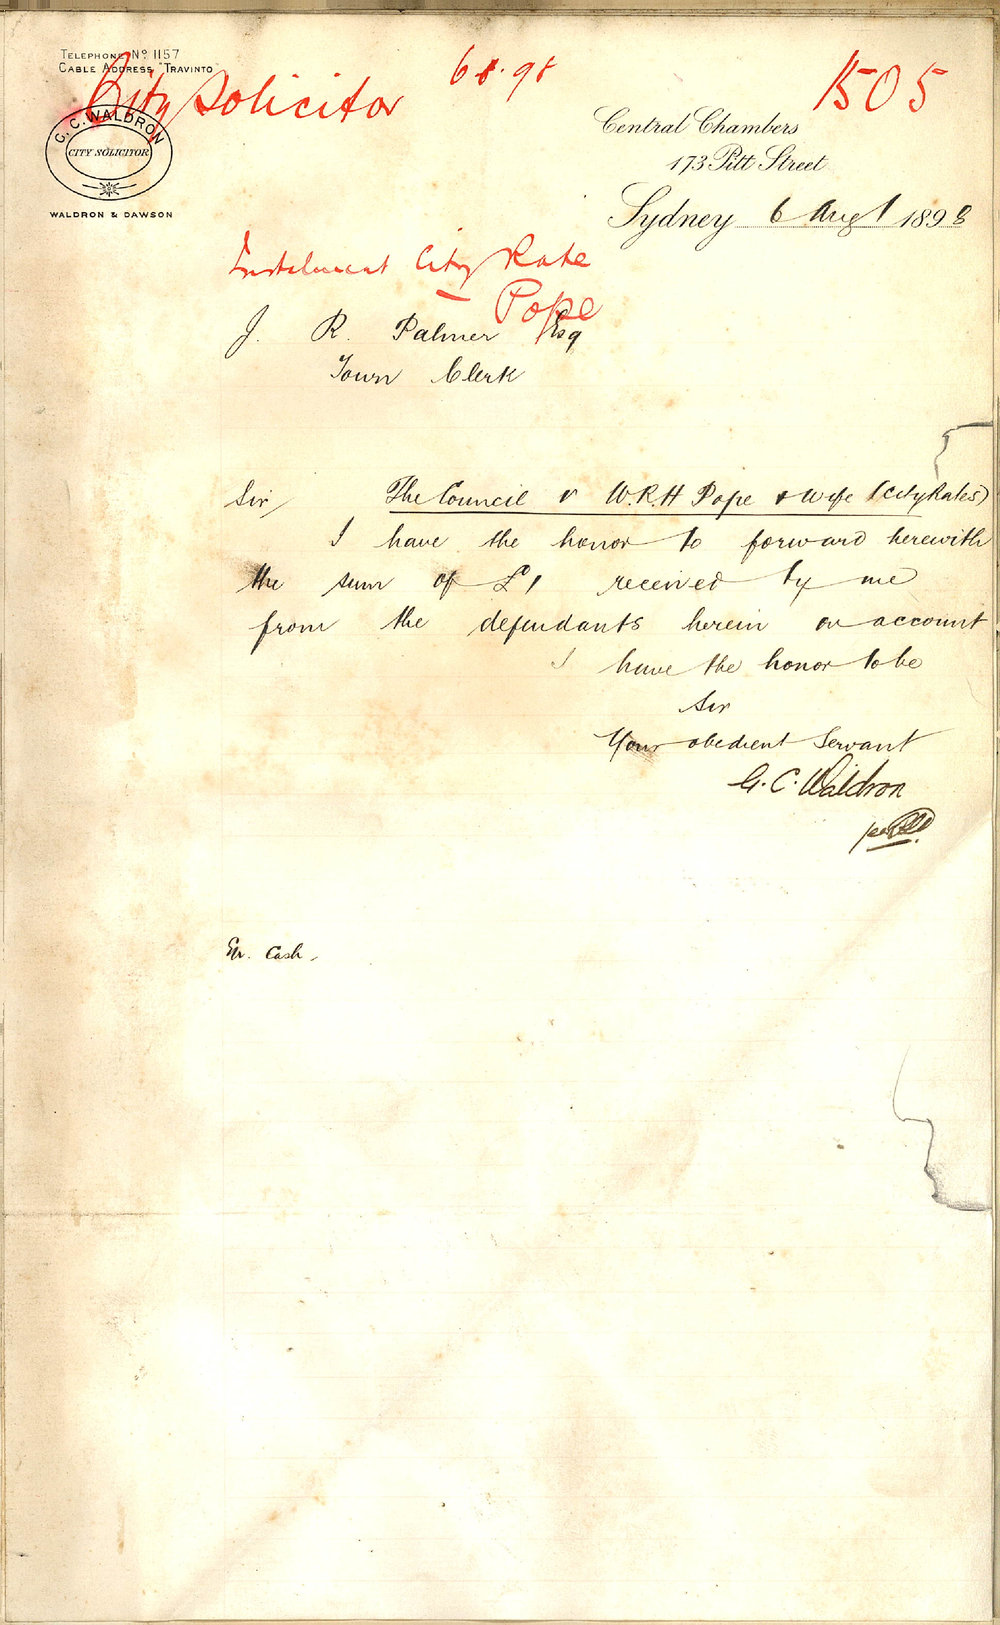 TELEPHONE Nº 1157
CABLE ADDRESS "TRAVINTO"
City Solicitor
6.8.98
1505
G. C. WALDRON
CITY SOLICITOR
WALDRON & DAWSON
Central Chambers
173 Pitt Street
Sydney 6 Augt 1898
Instalment City Rate
— Pope
J. R. Palmer Esq
Town Clerk
Sir The Council v W.R.H Pope & wife (City Rates)
I have the honor to forward herewith
the sum of £1 received by me
from the defendants herein on account
I have the honor to be
Sir
Your obedient Servant
G. C. Waldron
per
Cash.